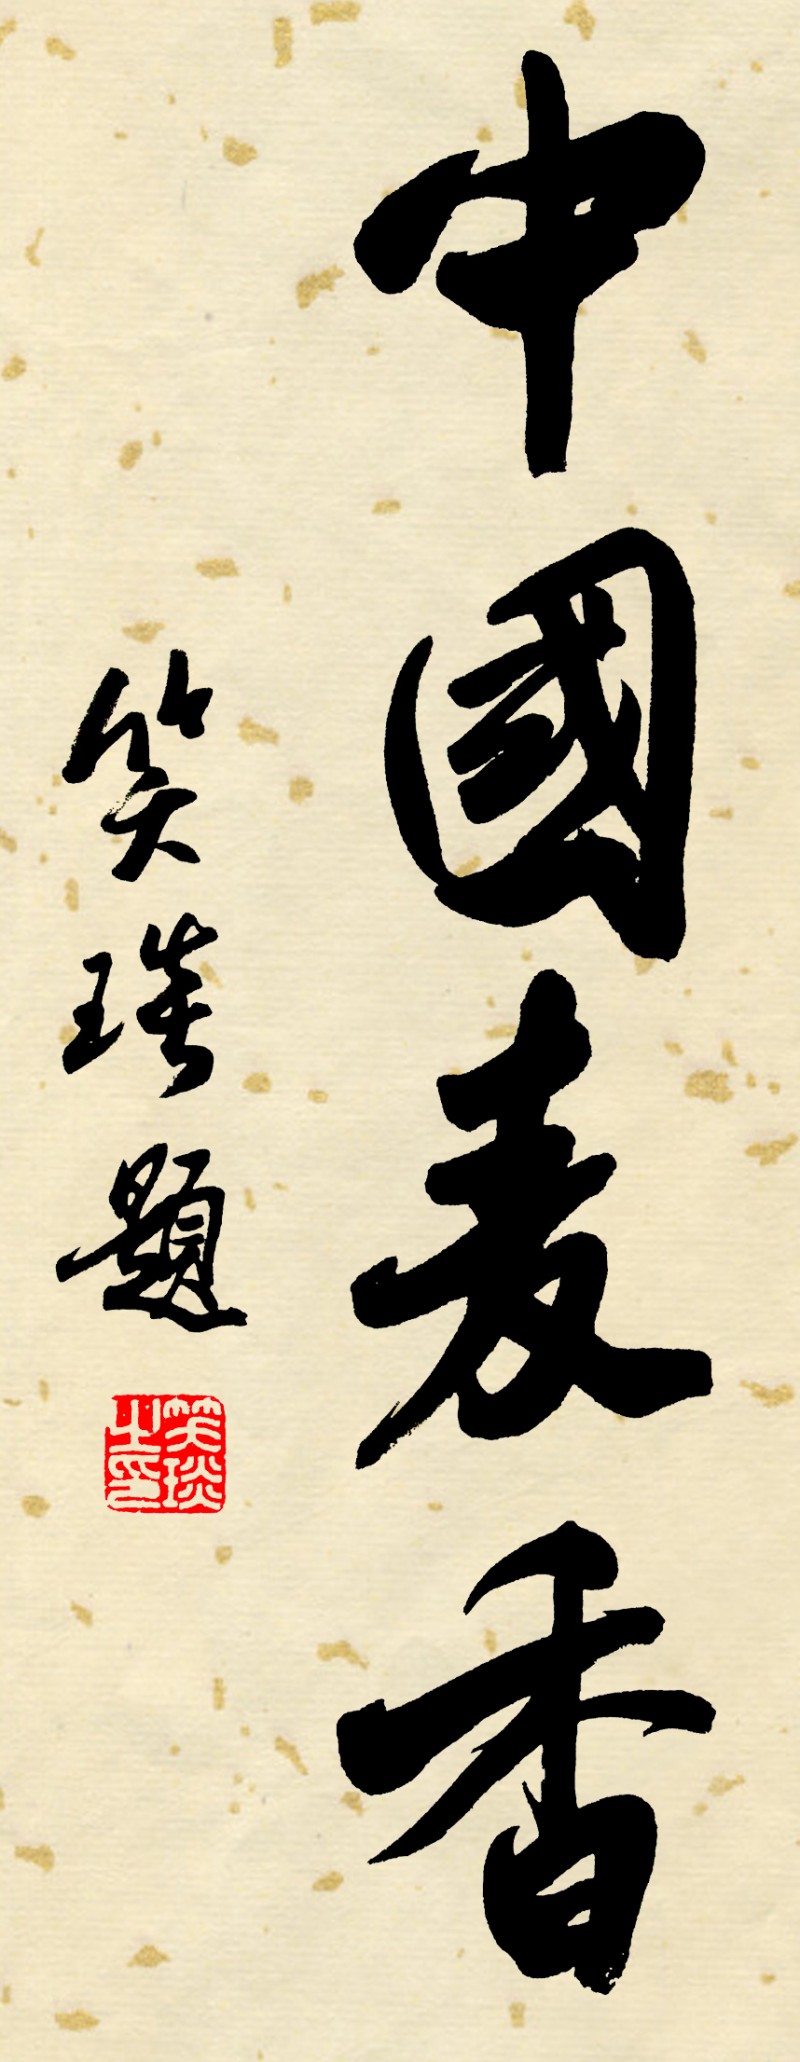 中國麦香
笑琰題
笑琰之印